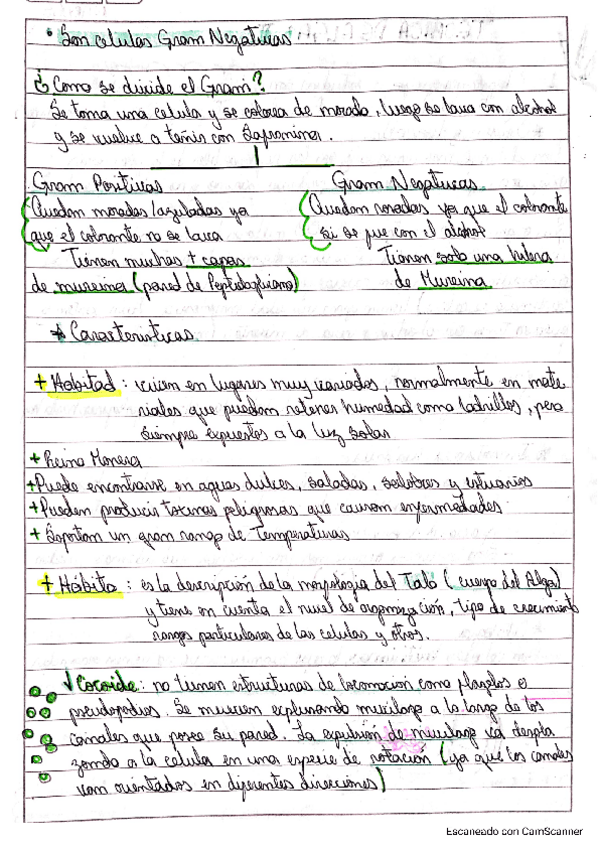 • Son celulas Gram Negativas.
¿Como se divide el Gram?
Se toma una celula y se colorea de morado, luego se lava con alcohol
y se vuelve a teñir con Safranina.
Gram Positivas
Quedan moradas/azuladas ya
que el colorante no se lava
Tienen muchas + capas
de mureina (pared de Peptidoglicano)
Gram Negativas
Quedan rosadas ya que el colorante
si se fue con el alcohol
Tienen solo una hilera
de Mureina
* Caracteristicas
+ Habitad: viven en lugares muy variados, normalmente en mate
riales que puedan retener humedad como ladrillos, pero
siempre expuestos a la luz solar
+ Reino Monera
+ Puede encontrarse en aguas dulces, saladas, salobres y estuarios
+ Pueden producir toxinas peligrosas que causan enfermedades
+ Soportan un gran rango de Temperaturas
+ Hábito: es la descripción de la morfologia del Talo (cuerpo del Alga)
y tiene en cuenta el nivel de organización, tipo de crecimiento
rangos particulares de las celulas y otros.
√ Cocoide: no tienen estructuras de locomoción como flagelos o
pseudopodios. Se mueven expulsando mucilago a lo largo de los
canales que posee su pared. La expulsión de mucilago va despla
zando a la célula en una especie de rotación (ya que los canales
van orientados en diferentes direcciones)
Escaneado con CamScanner